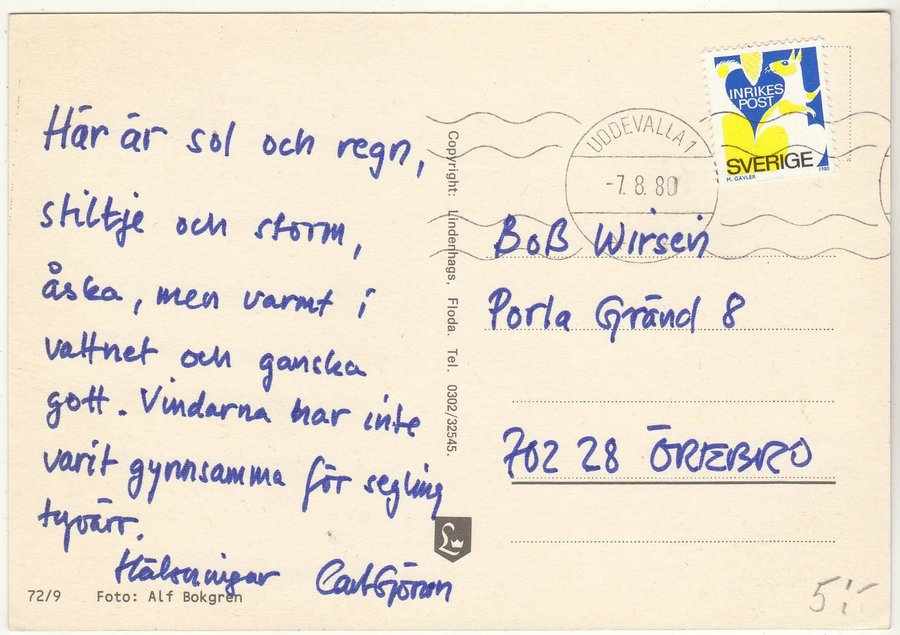 Här är sol och regn,
stiltje och storm,
åska, men varmt i
vattnet och ganska
gott. Vindarna har inte
varit gynnsamma för segling
tyvärr.
Hälsningar CarlGöran
72/9 Foto: Alf Bokgren
Copyright: Lindenhags, Floda. Tel. 0302/32545.
L
UDDEVALLA 1
-7. 8. 80
INRIKES
POST
SVERIGE
M. GAVLER 1980
Boß Wirsén
Porla Gränd 8
702 28 ÖREBRO
5:-